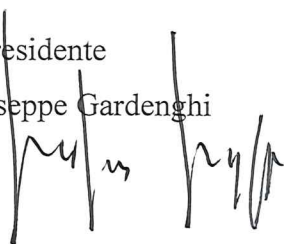 residente
seppe Gardenghi